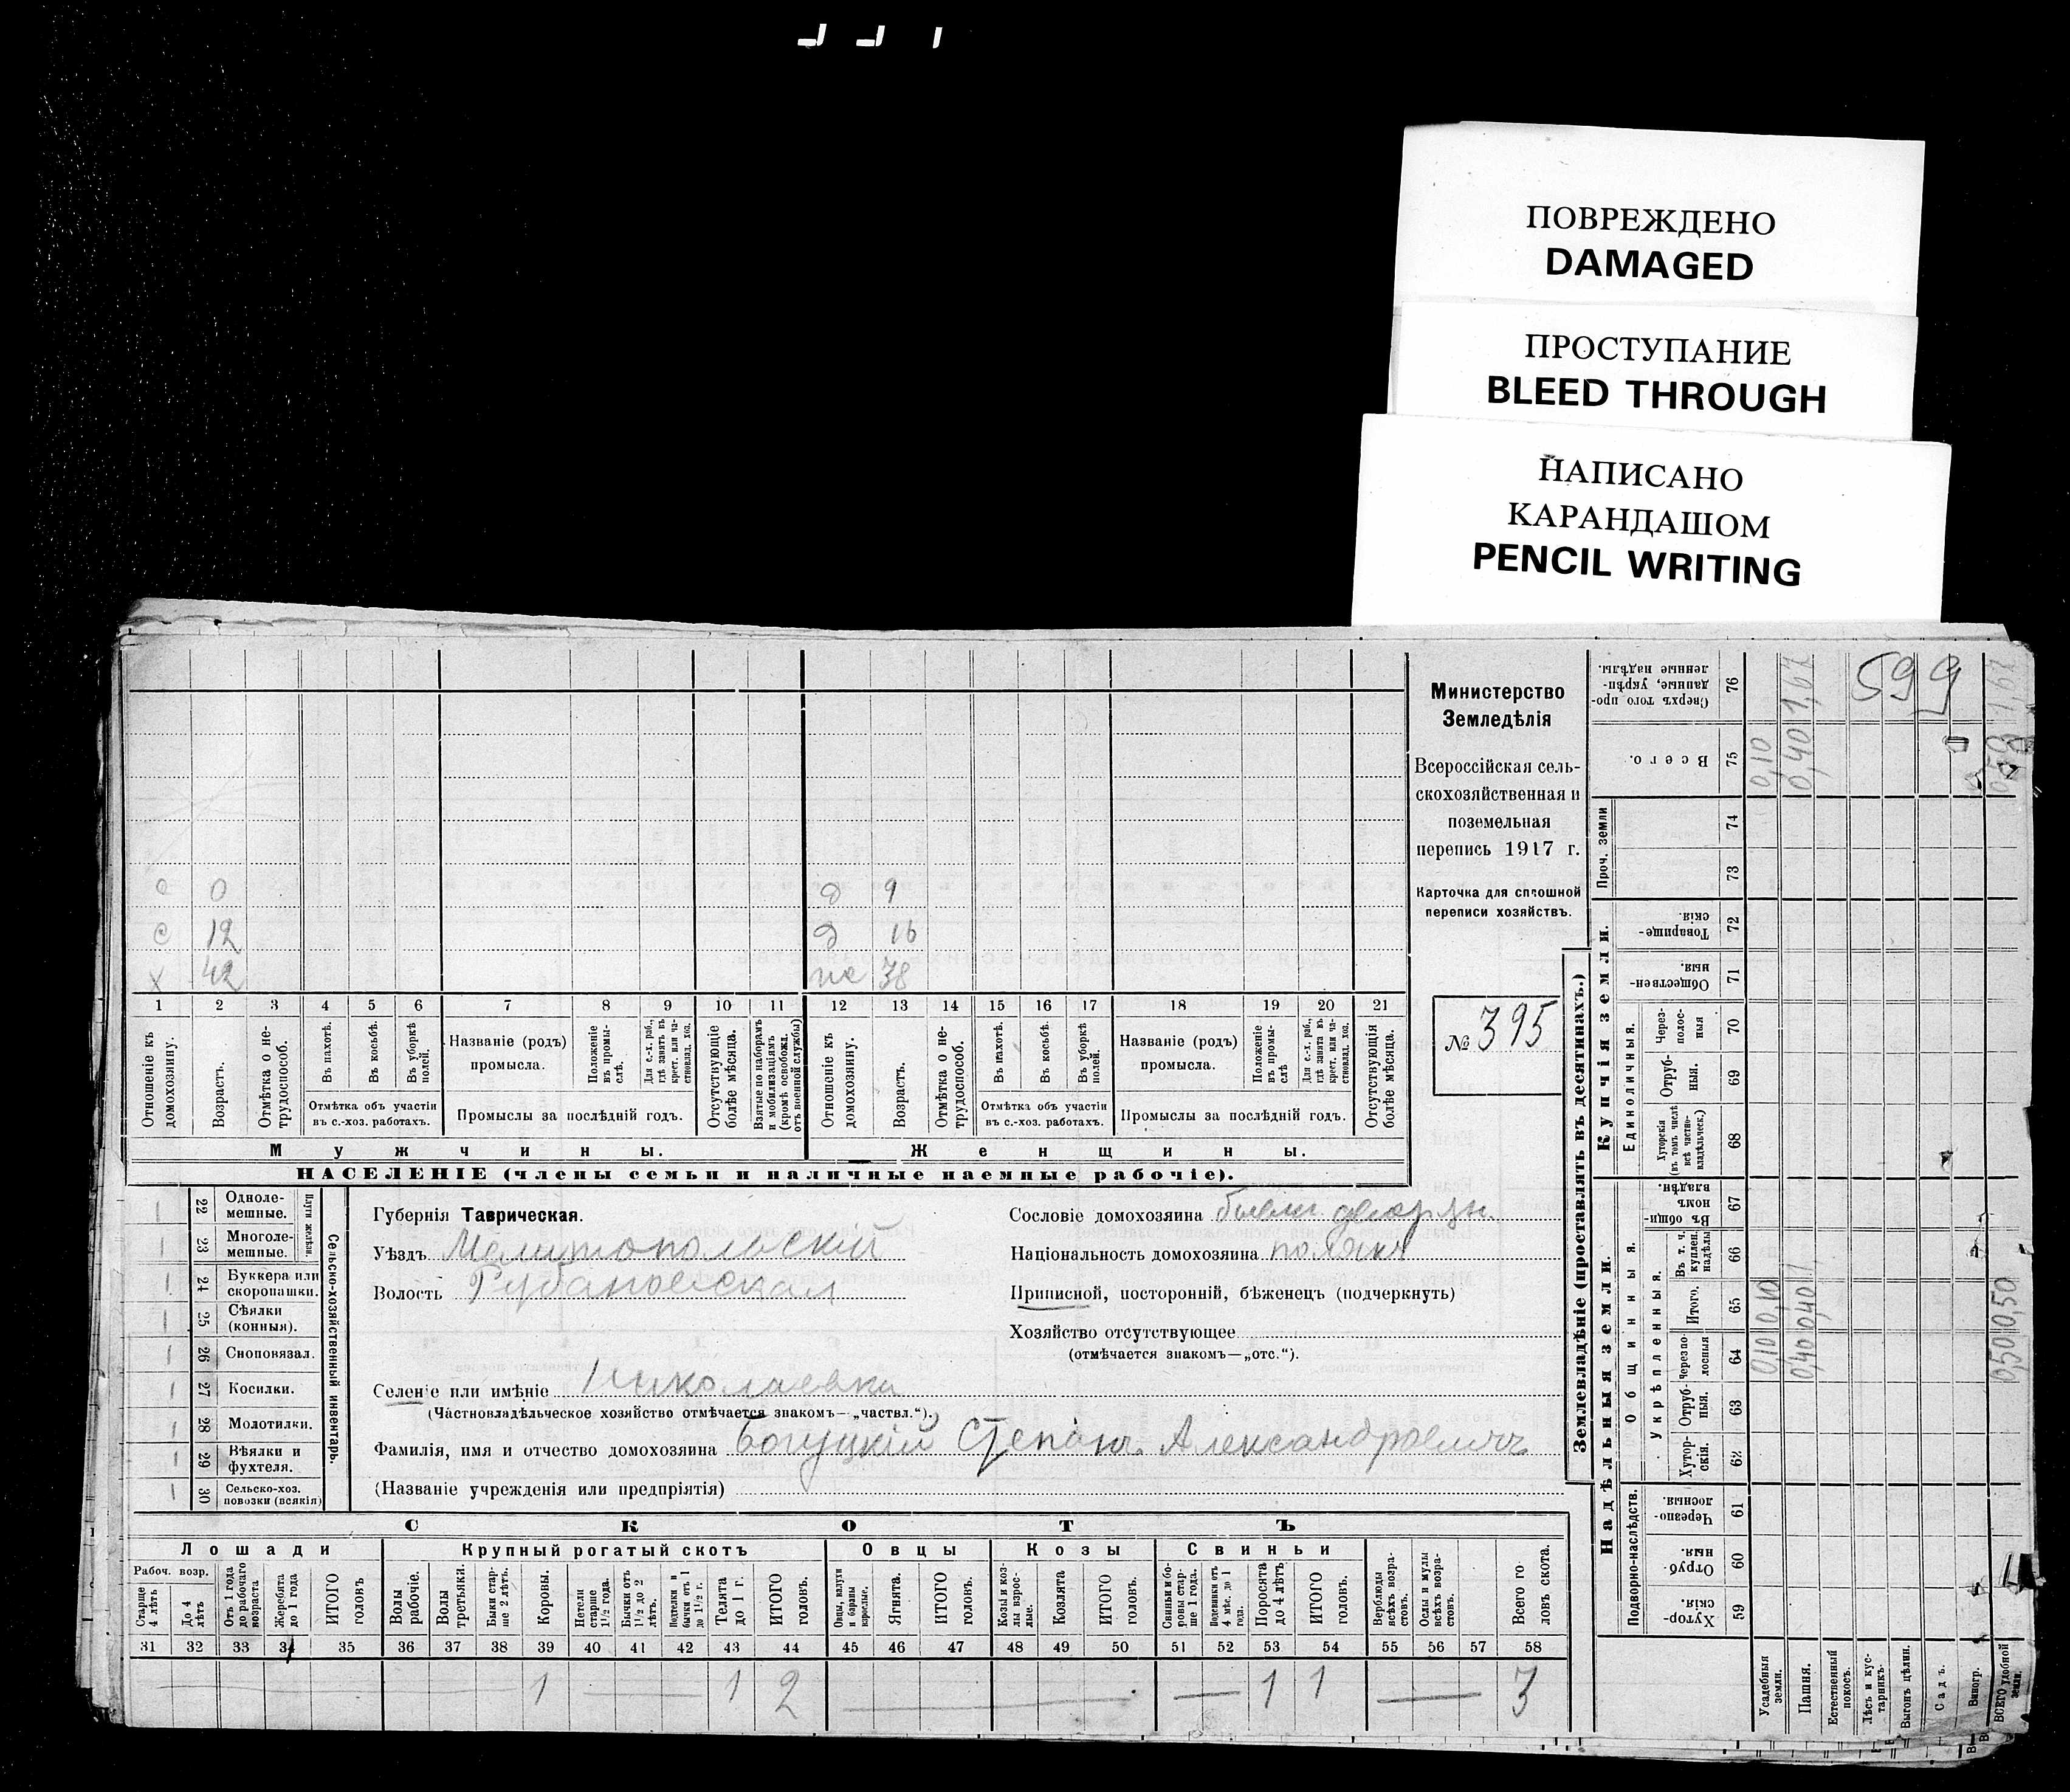 ПОВРЕЖДЕНО
DAMAGED
ПРОСТУПАНИЕ
BLEED THROUGH
НАПИСАНО
КАРАНДАШОМ
PENCIL WRITING
Министерство
Земледѣлія
Всероссійская сель-
скохозяйственная и
поземельная
перепись 1917 г.
Карточка для сплошной
переписи хозяйствъ.
№ 395
с 0 д 9
с 12 д 16
х 42 же 38
1 2 3 4 5 6 7 8 9 10 11 12 13 14 15 16 17 18 19 20 21
Отношеніе къ домохозяину.
Возрастъ.
Отмѣтка о не-трудоспособ.
Въ пахотѣ.
Въ косьбѣ.
Въ уборкѣ полей.
Отмѣтка объ участіи
въ с.-хоз. работахъ.
Названіе (родъ)
промысла.
Положеніе въ промы-слѣ.
Для с.-х. раб., гдѣ занятъ въ крест. или ча-стновлад. хоз.
Промыслы за послѣдній годъ.
Отсутствующіе болѣе мѣсяца.
Взятые по наборамъ и мобилизаціямъ (кромѣ освобожд. отъ военной службы)
Отношеніе къ домохозяину.
Возрастъ.
Отмѣтка о не-трудоспособ.
Въ пахотѣ.
Въ косьбѣ.
Въ уборкѣ полей.
Отмѣтка объ участіи
въ с.-хоз. работахъ.
Названіе (родъ)
промысла.
Положеніе въ промы-слѣ
Для с.-х. раб., гдѣ занята въ крест. или ча-стновлад. хоз.
Промыслы за послѣдній годъ.
Отсутствующія болѣе мѣсяца.
Мужчины. Женщины.
НАСЕЛЕНІЕ (члены семьи и наличные наемные рабочіе).
Сельско-хозяйственный инвентарь.
22 Одноле-мешные.
23 Многоле-мешные.
24 Буккера или скоропашки.
25 Сѣялки (конныя).
26 Сноповязал.
27 Косилки.
28 Молотилки.
29 Вѣялки и фухтеля.
30 Сельско-хоз. повозки (всякія)
Губернія Таврическая.
Уѣздъ Мелитопольскій
Волость Рубановская
Селеніе или имѣніе Николаевка
(Частновладѣльческое хозяйство отмѣчается знакомъ—„частвл.“).
Фамилія, имя и отчество домохозяина Богуцкій Степанъ Александровичъ
(Названіе учрежденія или предпріятія)
Сословіе домохозяина
Національность домохозяина полякъ
Приписной, посторонній, бѣженец (подчеркнуть)
Хозяйство отсутствующее
(отмѣчается знакомъ—„отс.“).
СКОТЪ
Лошади Крупный рогатый скотъ Овцы Козы Свиньи
Рабоч. возр.
Старше 4 лѣтъ
До 4 лѣтъ
Отъ 1 года до рабочаго возраста
Жеребята до 1 года
ИТОГО головъ
Волы рабочие.
Волы третьяки.
Быки стар-ше 2 лѣтъ.
Коровы.
Нетели старше 1½ года.
Бычки отъ 1½ до 2 лѣтъ.
Подтелки и бычки отъ 1 до 1½ г.
Телята до 1 г.
ИТОГО головъ.
Овцы, валухи и бараны взрослые.
Ягнята.
ИТОГО головъ.
Козы и коз-лы взрос-лые.
Козлята
ИТОГО головъ.
Свиньи и бо-ровы стар-ше 1 года.
Подсвинки отъ 4 мѣс. до 1 года.
Поросята до 4 лѣтъ
ИТОГО головъ.
Верблюды всѣхъ возра-стовъ.
Ослы и мулы всѣхъ возра-стовъ.
Всего го-ловъ скота.
31 32 33 34 35 36 37 38 39 40 41 42 43 44 45 46 47 48 49 50 51 52 53 54 55 56 57 58
1 1 2 1 1 3
Землевладѣніе (проставлять въ десятинахъ.)
Надѣльныя земли. Купчія земли.
Подворно-наслѣдств.
Общинныя.
Укрѣпленныя.
Единоличныя.
Проч. земли
59 Хутор-скія
60 Отруб-ныя.
61 Черезпо-лосныя.
62 Хутор-скія.
63 Отруб-ныя.
64 Черезпо-лосныя
65 Итого.
66 Въ т. ч. куплен. надѣлы
67 Въ общи-номъ владѣн.
68 Хуторскія (въ томъ числѣ всѣ частно-владѣльческ.)
69 Отруб-ныя.
70 Через-полос-ныя
71 Обществен-ныя.
72 Товарище-скія
73
74
75 Всего.
76 Сверхъ того про-данные, укрѣп-ленные надѣлы.
Усадебныя земли.
Пашня.
Естественный покосъ.
Лѣсъ и кус-тарникъ.
Выгонъ цѣлин.
Садъ.
Виногр.
ВСЕГО удобной земли.
0,10 0,10 0,10
0,40 0,40 0,40 1,67
0,50 0,50 0,50 1,67
599